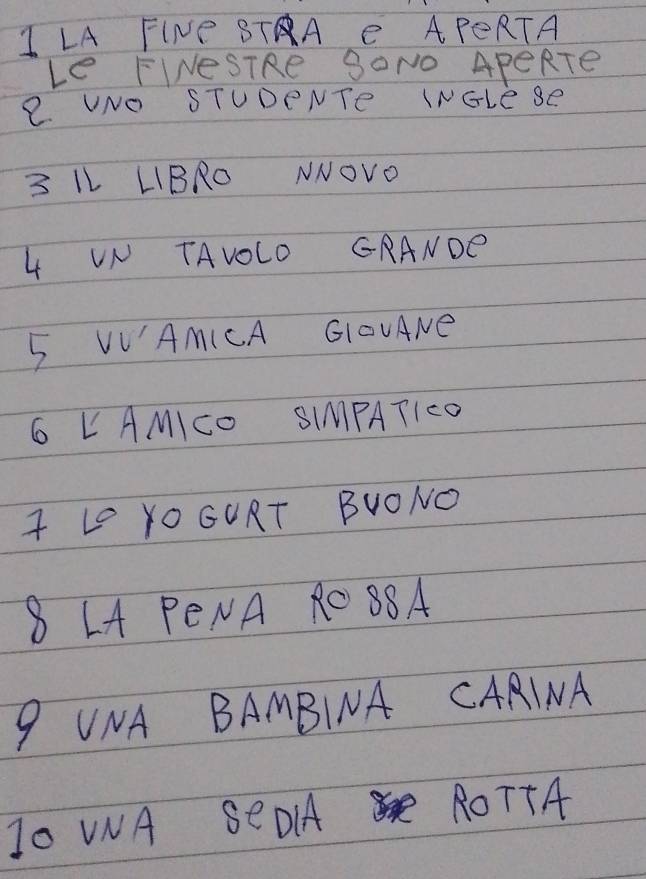 1 LA FINESTRA e APERTA
Le FINESTRE SONO APERTE
2 UNO STUDENTE INGLESE
3 IL LIBRO NNOVO
4 UN TAVOLO GRANDE
5 VU'AMICA GIOVANE
6 L'AMICO SIMPATICO
7 LO YOGURT BUONO
8 LA PENA ROSSA
9 UNA BAMBINA CARINA
10 UNA SEDIA ROTTA